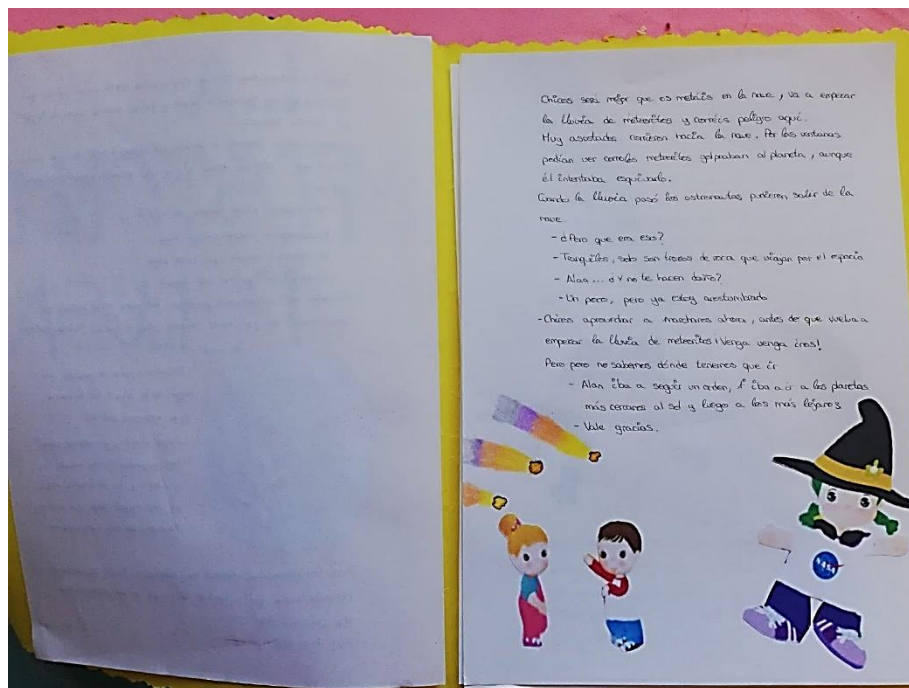 Chicos será mejor que os metáis en la nave, va a empezar
la lluvia de meteoritos y corréis peligro aquí.
Muy asustados corrieron hacia la nave. Por las ventanas
podían ver como los meteoritos golpeaban al planeta, aunque
él intentaba esquivarlo.
Cuando la lluvia pasó los astronautas pudieron salir de la
nave.
- ¿Pero que era eso?
- Tranquilos, solo son trozos de roca que viajan por el espacio
- Alan... ¿Y no te hacen daño?
- Un poco, pero ya estoy acostumbrado
- Chicos aprovechar a marcharos ahora, antes de que vuelva a
empezar la lluvia de meteoritos ¡Venga venga iros!
Pero pero no sabemos dónde tenemos que ir
- Alan iba a seguir un orden, 1º iba a ir a los planetas
más cercanos al sol y luego a los más lejanos
- Vale gracias.
NASA